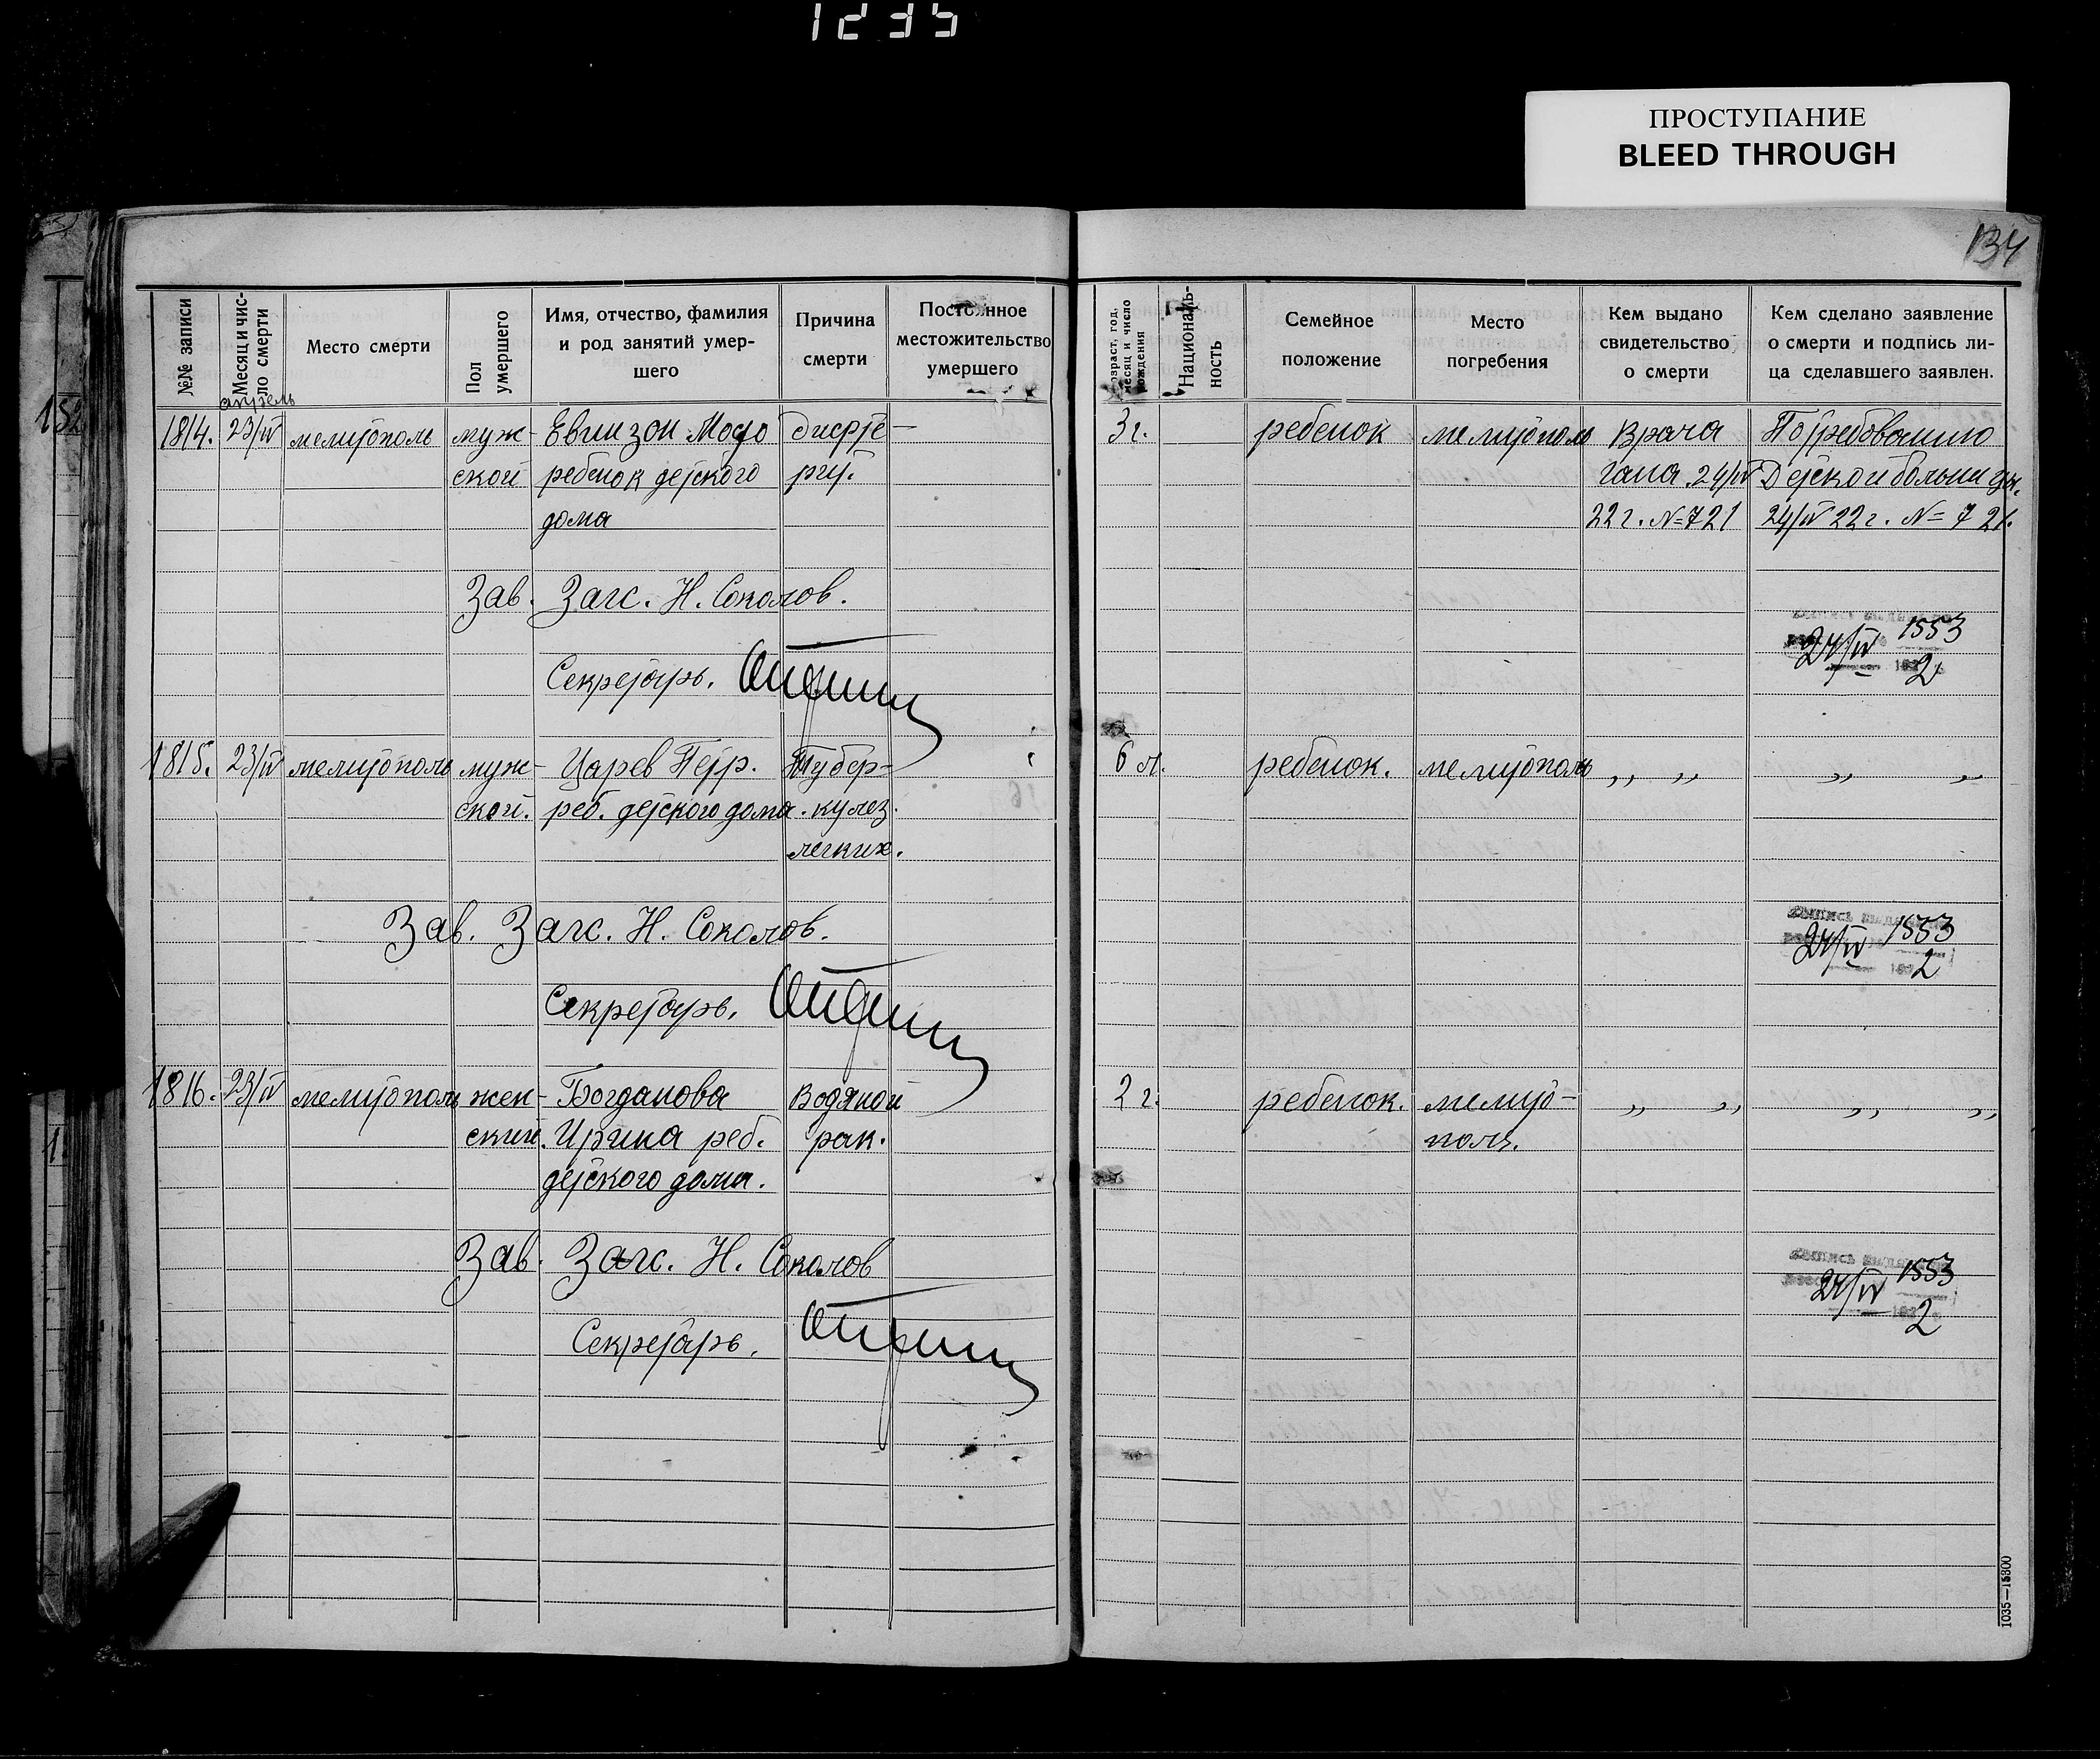 1235
ПРОСТУПАНИЕ
BLEED THROUGH
134
№№ записи
Месяц и чис-
ло смерти
Место смерти
Пол
умершего
Имя, отчество, фамилия
и род занятий умер-
шего
Причина
смерти
Постоянное
местожительство
умершего
Возраст, год,
месяц и число
рождения
Националь-
ность
Семейное
положение
Место
погребения
Кем выдано
свидетельство
о смерти
Кем сделано заявление
о смерти и подпись ли-
ца сделавшего заявлен.
апрель
1814. 23/IV мелитополь муж- - 3 г. ребенок мелитополь Врача По требованию
ской ребенок детского 24/IV Детской больницы.
дома 22 г. № 721 24/IV 22 г. № 721.
Зав. Загс. Н. Соколов.
24/IV 1553
2
Секретарь.
1815. 23/IV мелитополь муж- Царев Петр. Тубер- 6 м. ребенок. мелитополь ,, ,, ,, ,,
ской. реб. детского дома. кулез.
легких.
Зав. Загс. Н. Соколов.
24/IV 1553
2
Секретарь.
1816. 23/IV мелитополь жен- Богданова Водяной 2 г. ребенок. мелито- ,, ,, ,, ,,
ский. Ирина реб. рак. поль.
детского дома.
Зав. Загс. Н. Соколов
24/IV 1553
2
Секретарь.
1035—15800